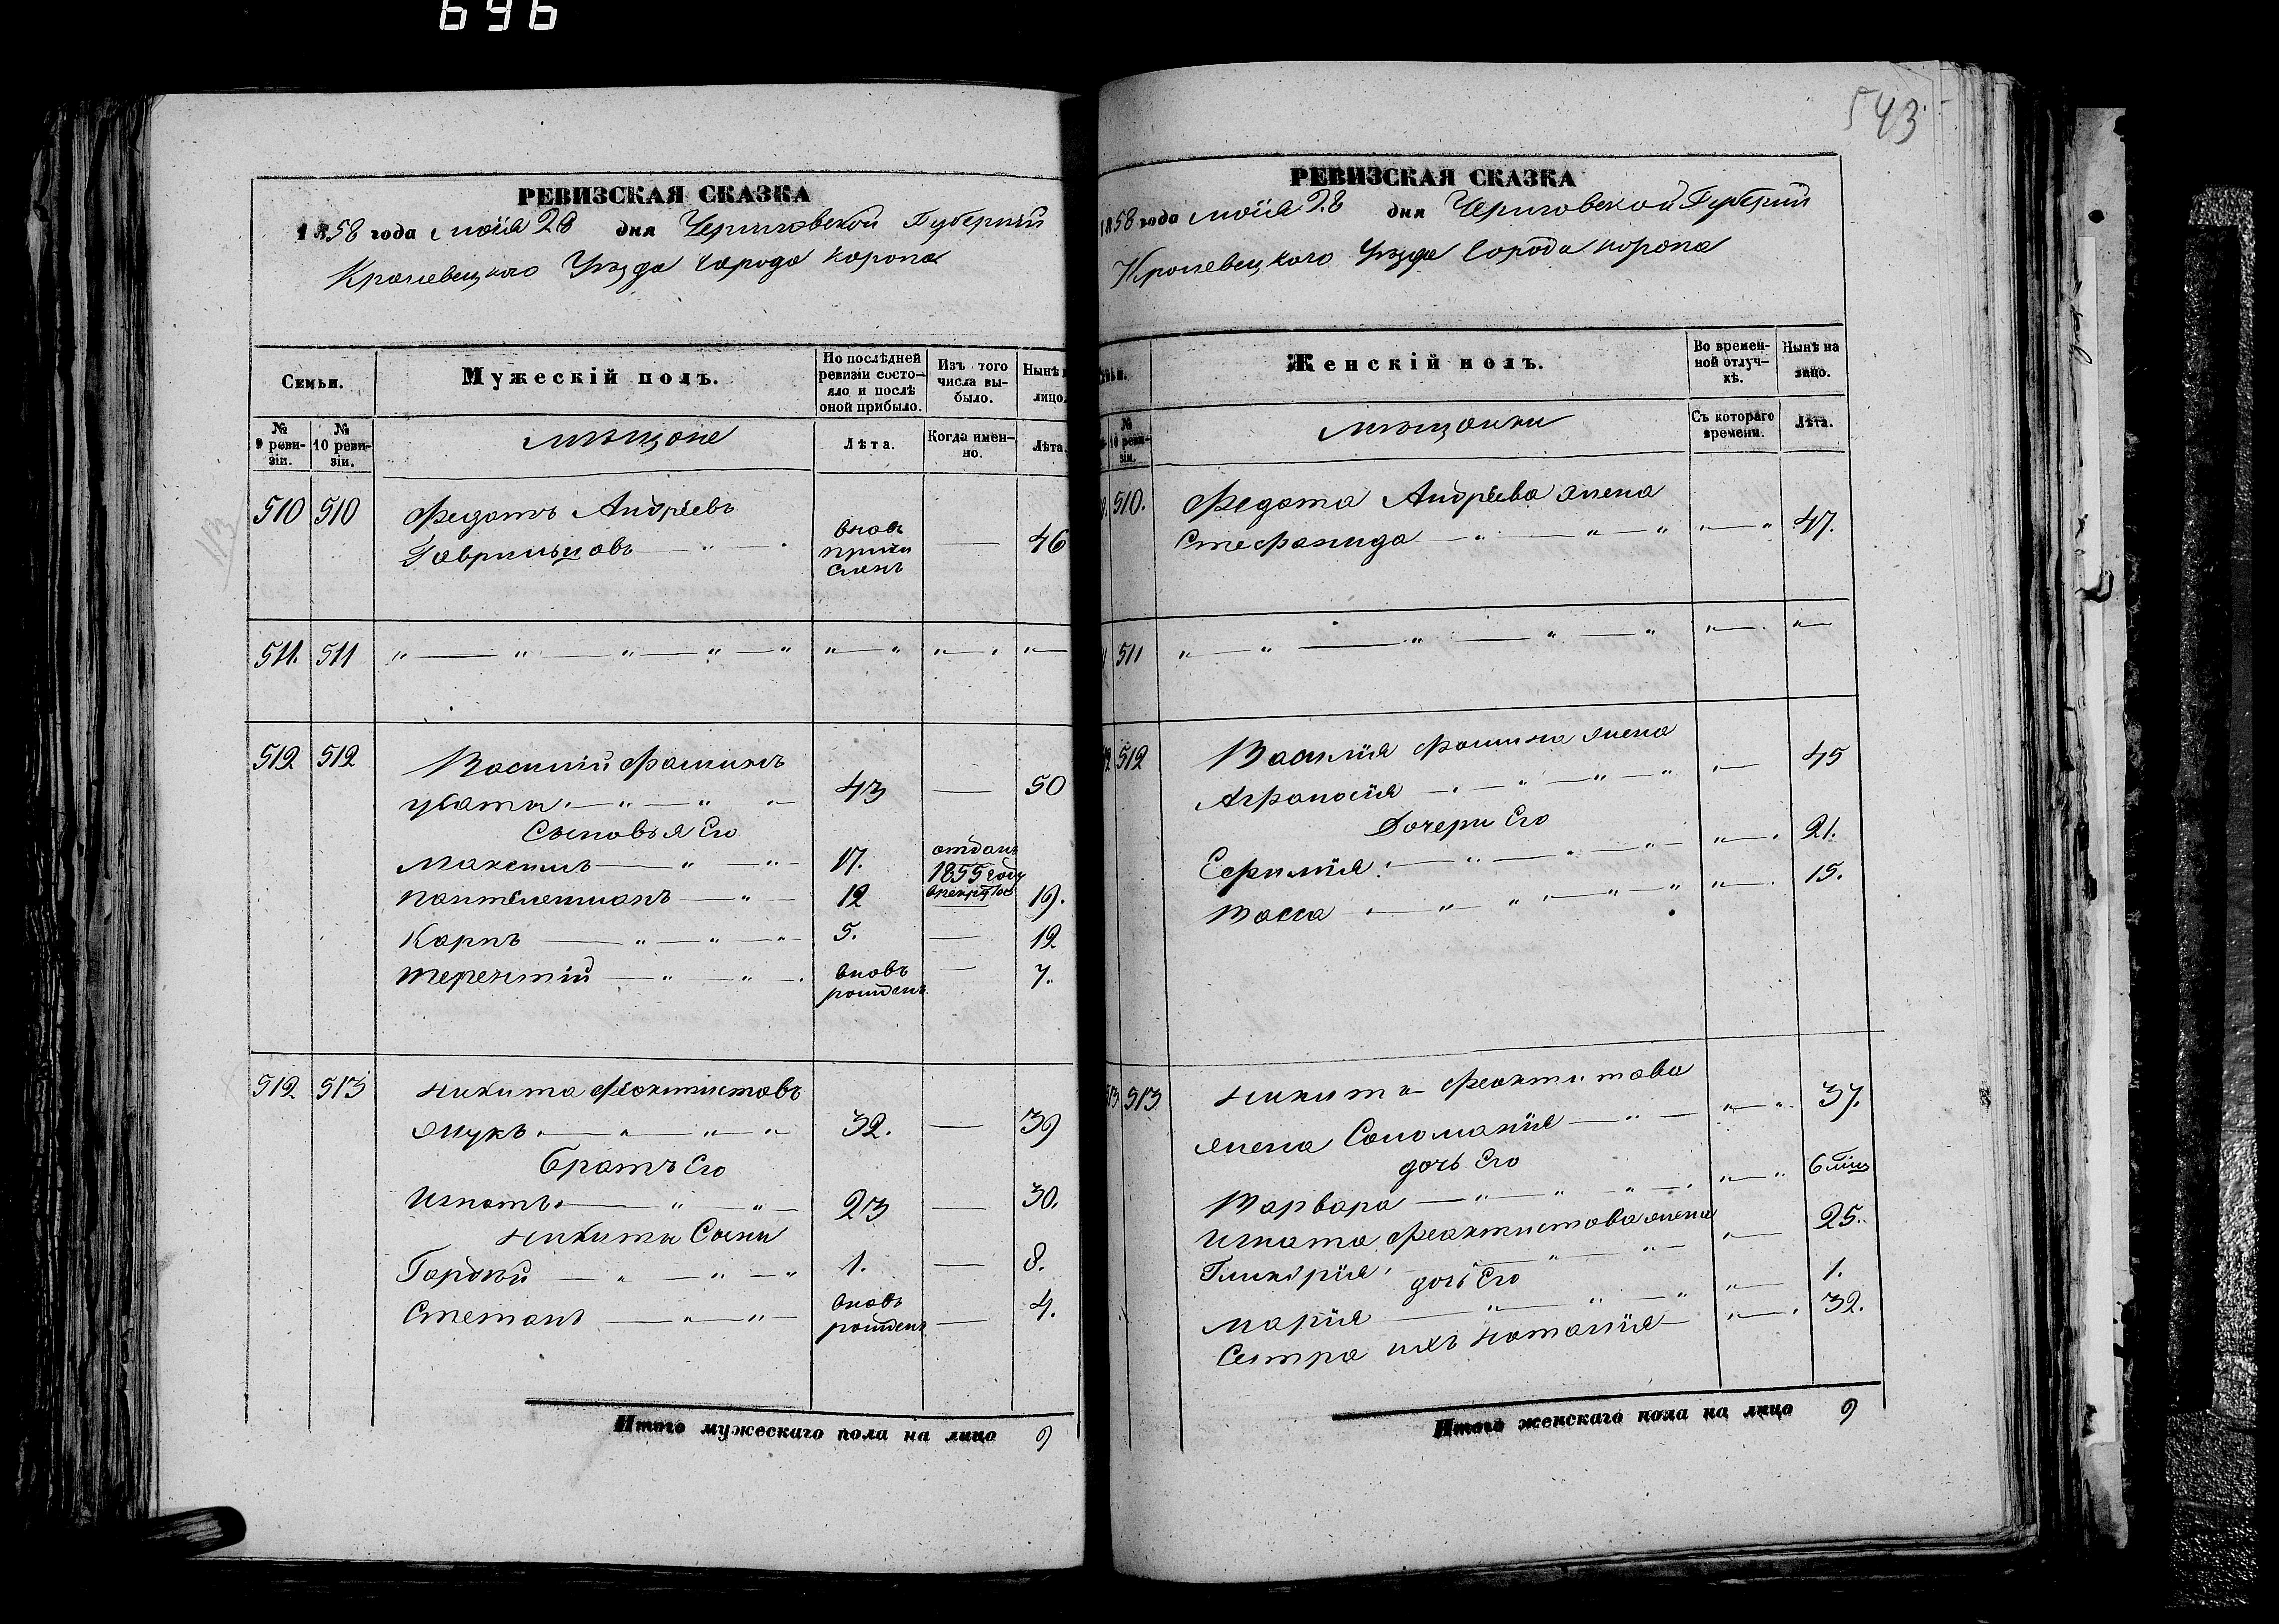 696
РЕВИЗСКАЯ СКАЗКА
1858 года маія 28 дня Черниговской Губерніи
Кролевецкого Уезда города Коропа
Семьи.
Мужескій полъ.
По послѣдней ревизіи состояло и послѣ оной прибыло.
Изъ того числа выбыло.
Нынѣ
лицо.
№ 9 ревизіи.
№ 10 ревизіи.
мещане
Лѣта.
Когда именно.
Лѣта.
510 510 Федотъ Андріевъ
Гаврильцовъ вновь причисленъ 46
511. 511
512 512 Василій Фоминъ
43 50
Сыновья Его
Максимъ 17. отданъ 1855 году
Пантелеимонъ 12 19.
Карпъ 5. 12
Терентій вновь рожденъ 7.
512 513 Никита Феоктистовъ
Жукъ 32. 39
Братъ Его
Игнатъ 23 30.
Никиты Сыны
Гордѣй 1. 8.
Степанъ вновь рожденъ 4.
Итого мужескаго пола на лицо 9
543
РЕВИЗСКАЯ СКАЗКА
1858 года маія 28 дня Черниговской Губерніи
Кролевецкого Уезда города Коропа
Женскій полъ.
Во временной отлучкѣ.
Нынѣ на лицо.
№ 10 ревизіи.
мещанки
Съ котораго времени.
Лѣта.
510. Федота Андріева жена
Стефанида 47.
511
512 Василія Фомина жена
Агафія 45
Дочери Его
Евфимія 21.
Васса 15.
513 513 Никиты Феоктистова
жена Соломанія 37.
дочь Его
Варвара 6 мѣс
Игната Феоктистова жена
Гликерія 25.
дочь Его
Марія 1.
Сестра ихъ Наталія 32.
Итого женскаго пола на лицо 9